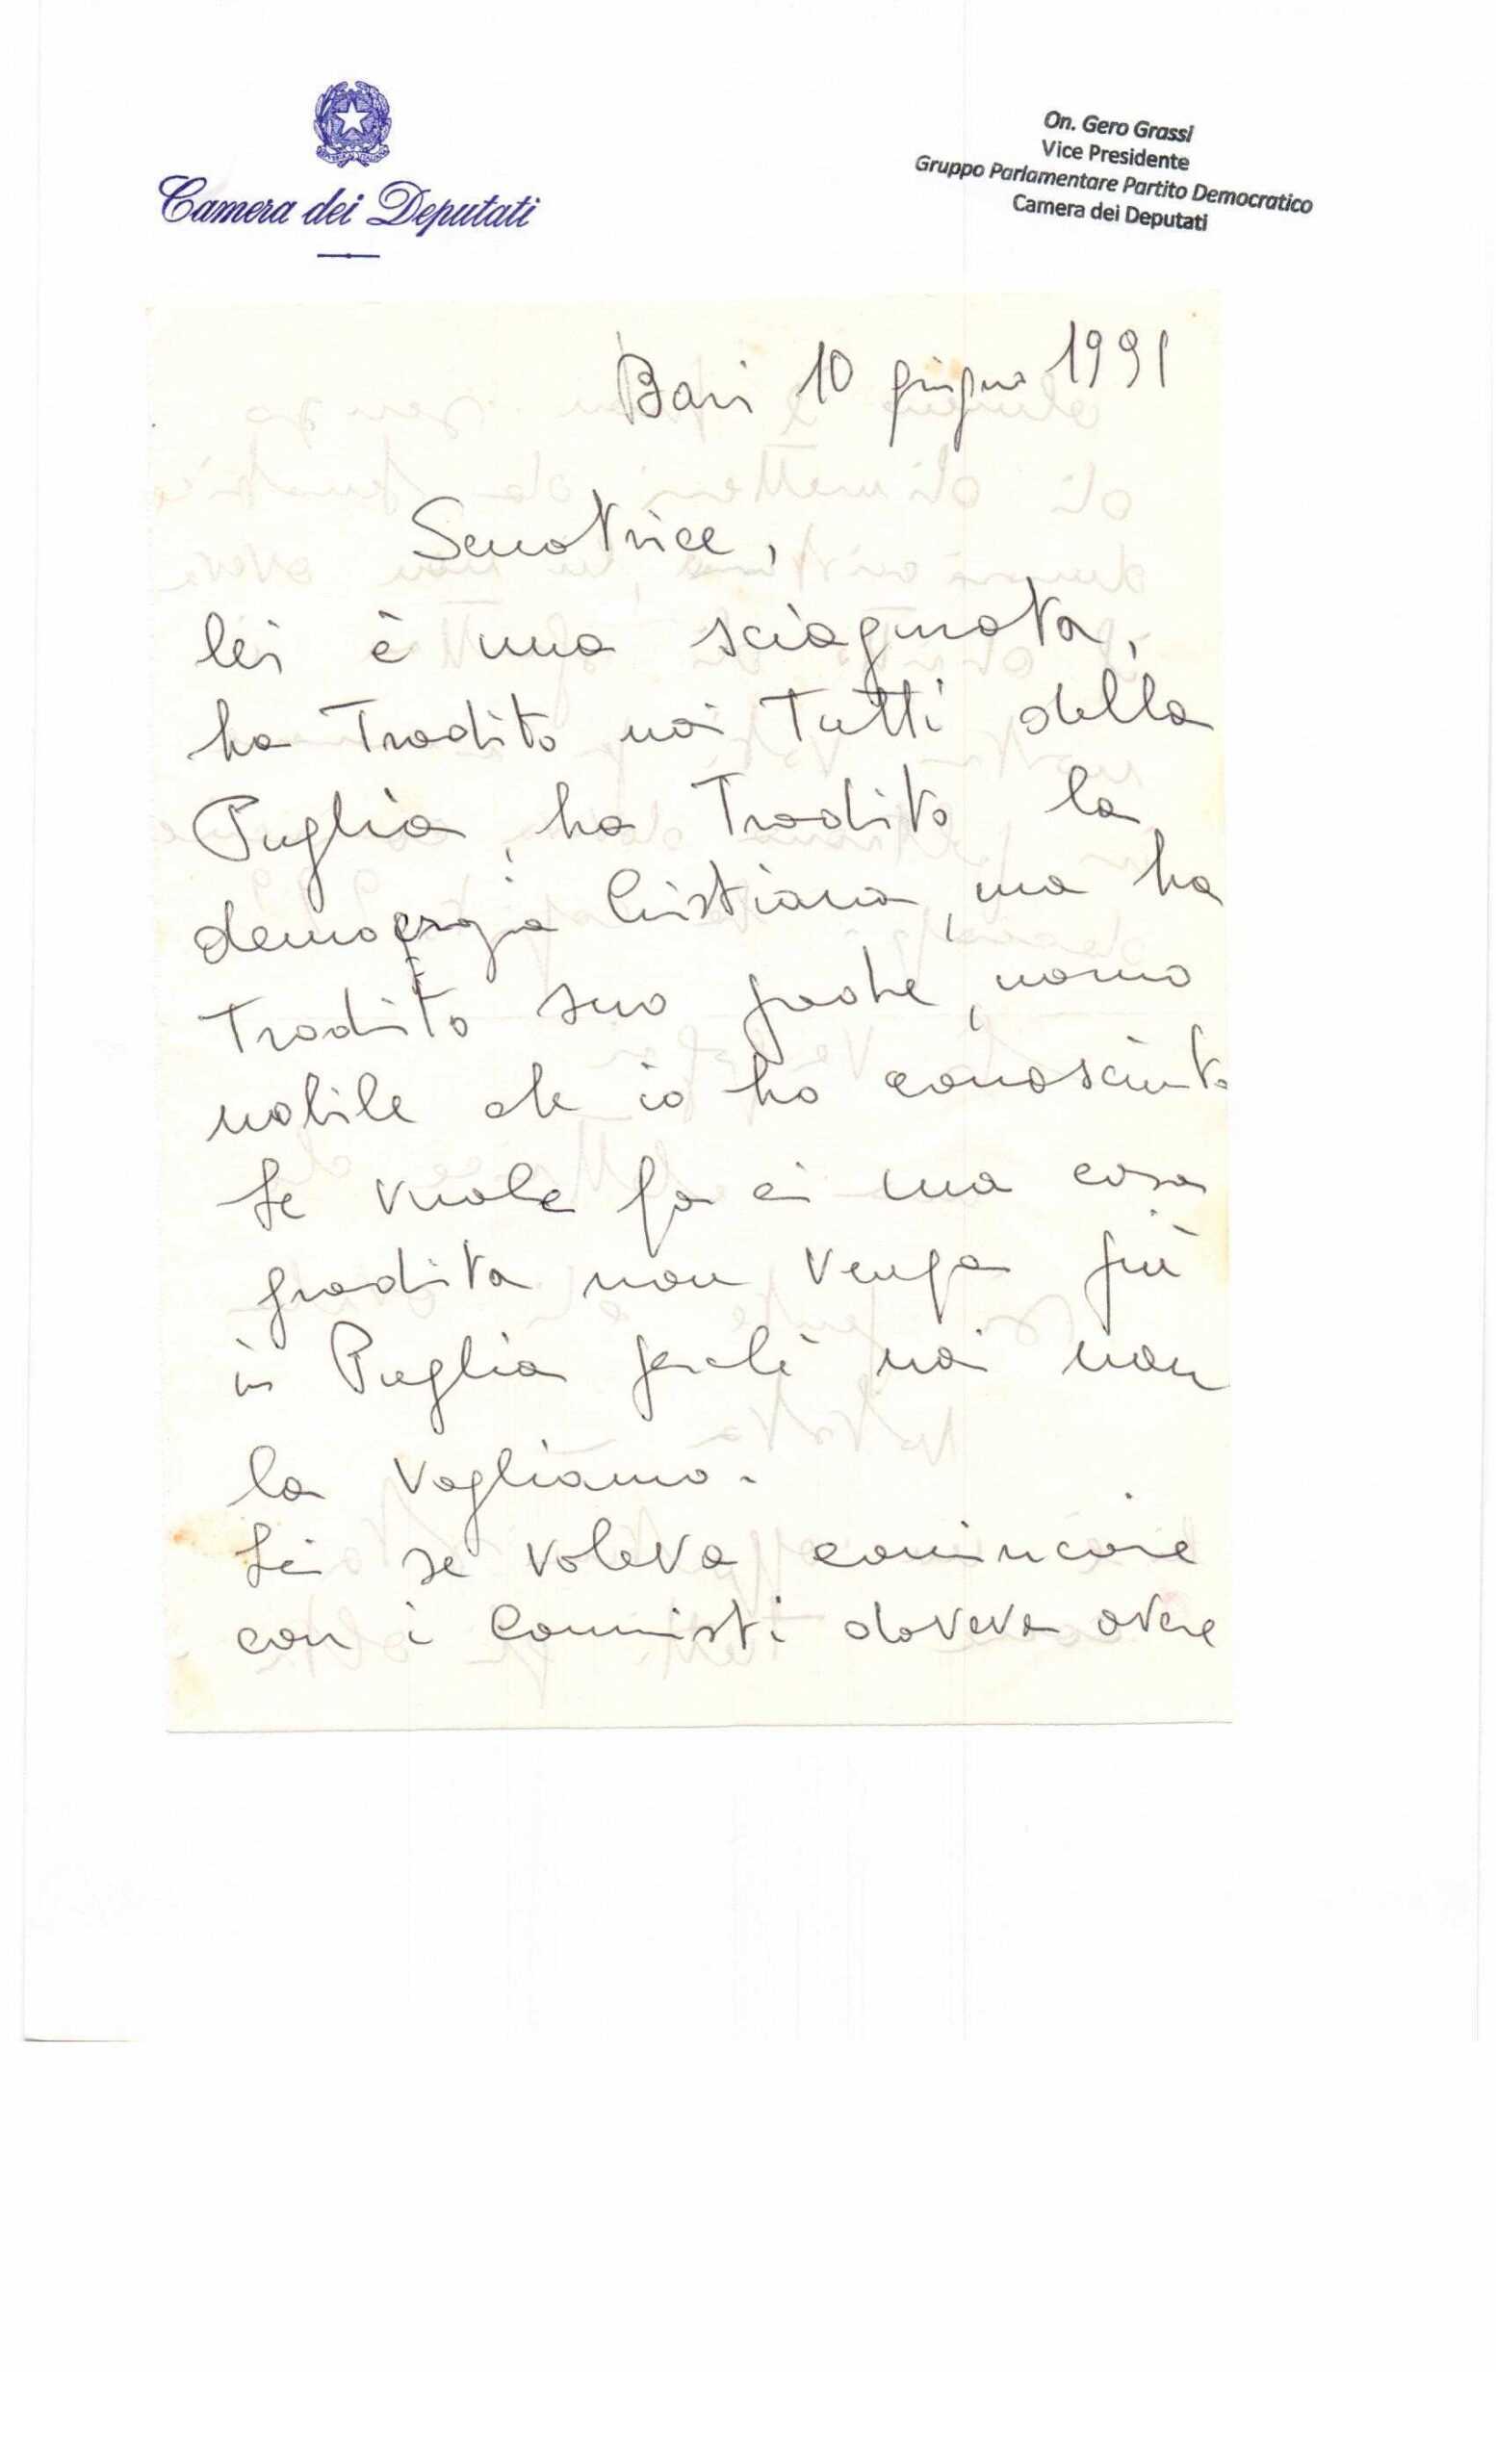 REPVBBLICA ITALIANA
Camera dei Deputati
On. Gero Grassi
Vice Presidente
Gruppo Parlamentare Partito Democratico
Camera dei Deputati
Bari 10 giugno 1991
Senatrice,
lei è una sciagurata,
ha tradito noi tutti della
Puglia, ha tradito la
Cristiana, ma ha
tradito suo padre, uomo
nobile che io ho conosciuto
Se vuole fa ci una cosa
gradita non venga più
in Puglia perchè noi non
la vogliamo.
Lei se voleva
con i doveva avere